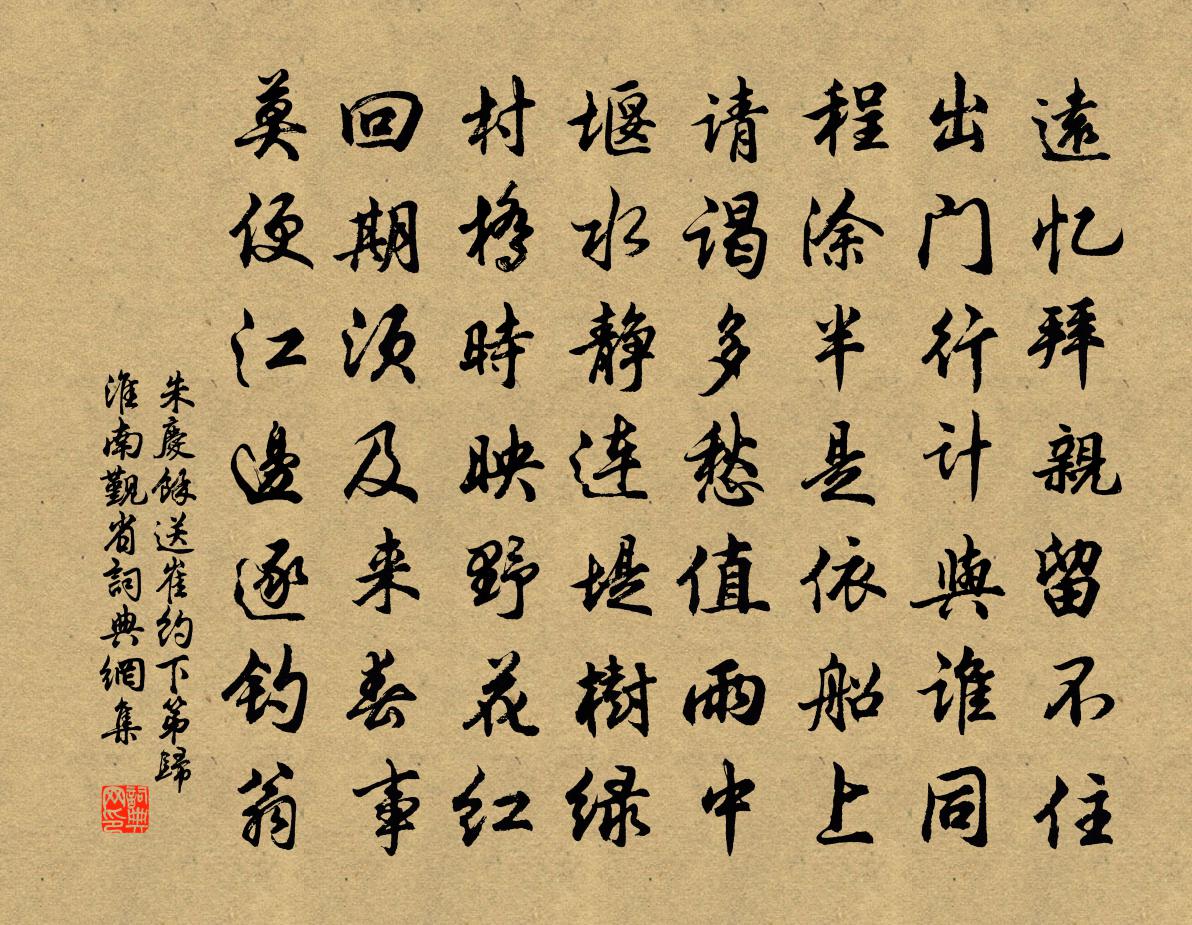 遠忆拜親留不住
出门行计與谁同
程涂半是依船上
请谒多愁值雨中
堰水静连堤樹绿
村橋時映野花红
回期须及来春事
莫便江邊逐钓翁
朱慶餘送崔约下第歸
淮南覲省詞典網集
詞典网印